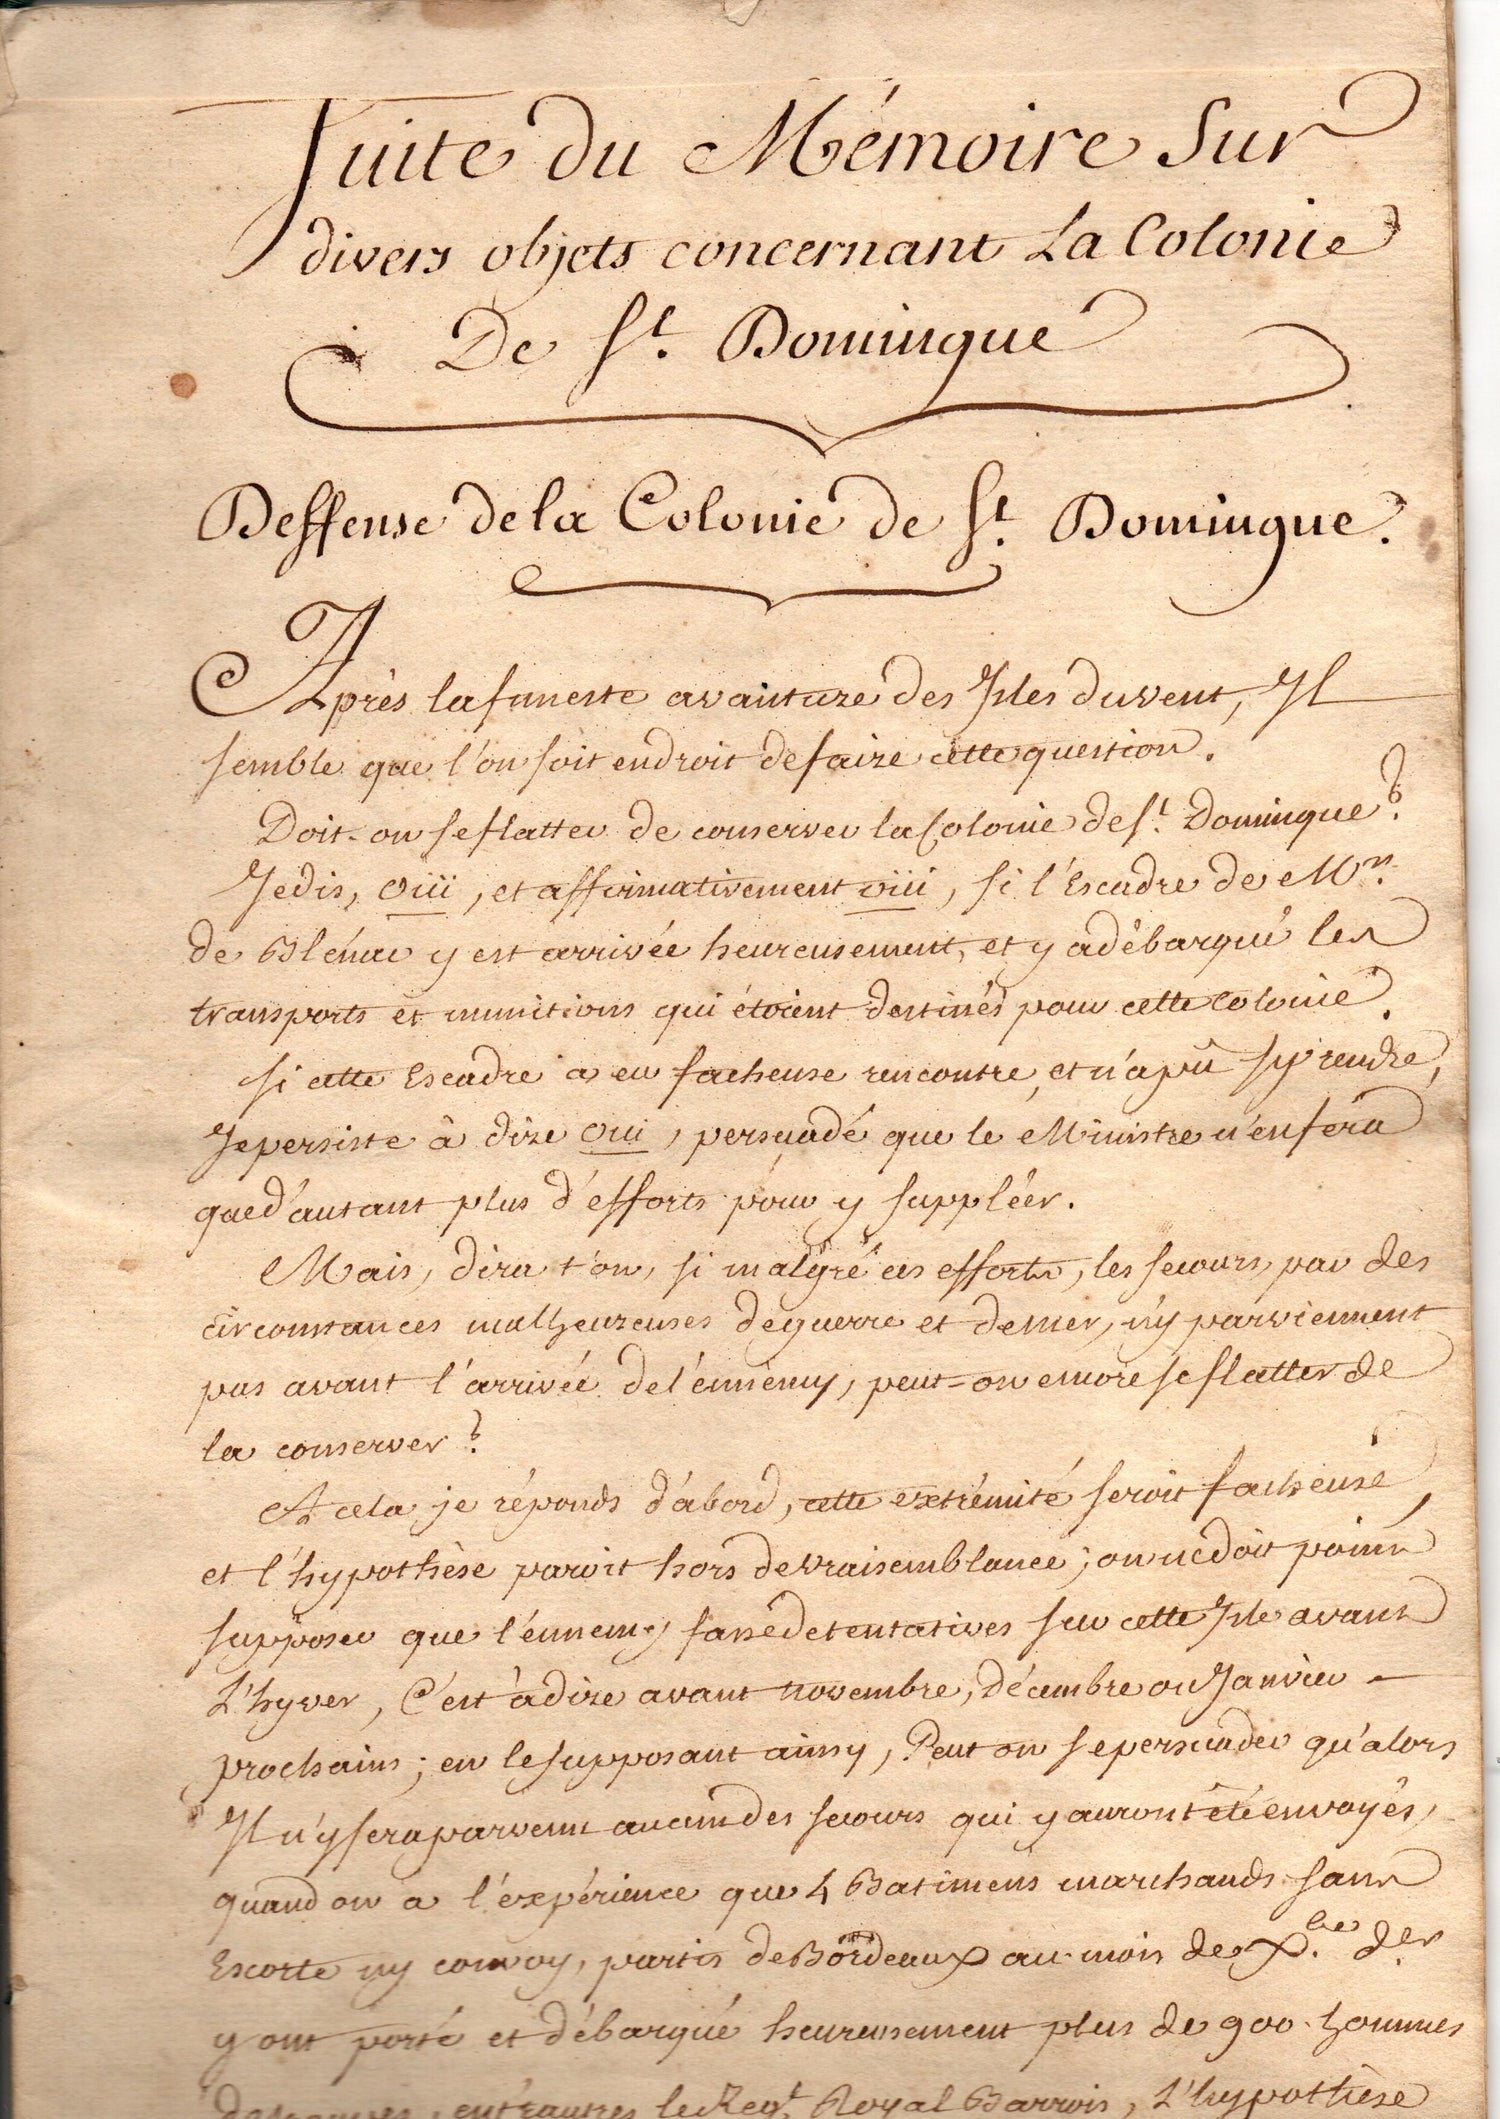 Suite du Mémoire sur
divers objets concernant La Colonie
De St. Domingue
Deffense de la Colonie de St. Domingue.
Après la funeste avanture des Isles du vent, Il
semble que l'on soit en droit de faire cette question.
Doit-on se flatter de conserver la Colonie de St. Domingue?
Je dis, oüi, et affirmativement oüi, si l'Escadre de Mr.
de Blénac y est arrivée heureusement, et y a débarqué les
transports et munitions qui étoient destinés pour cette Colonie.
Si cette Escadre a eu facheuse rencontre, et n'a pû s'y rendre,
Je persiste à dire oui, persuadé que le Ministre n'en fera
que d'autant plus d'efforts pour y suppléer.
Mais, dira t'on, si malgré ces efforts, les secours, par des
circonstances malheureuses de guerre et de mer, n'y parviennent
pas avant l'arrivée de l'énnemy, peut-on encore se flatter de
la conserver?
A cela je réponds d'abord, cette extrémité seroit facheuse,
et l'hypothèse paroit hors de vraisemblance; on ne doit point
supposer que l'énnemy fasse de tentatives sur cette Isle avant
L'hyver, C'est à dire avant novembre, décembre ou Janvier
prochains; en le supposant ainsy, Peut on se persuader qu'alors
Il n'y sera parvenu aucun des secours qui y auront été envoyés,
quand on a l'expérience que 4 Batimens marchands sans
Escorte ny convoy, partis de Bordeaux au mois de Xbre. der.
y ont porté et débarqué heureusement plus de 900. hommes
de troupes, entr'autres le Regt. Royal Barrois, L'hypothèse